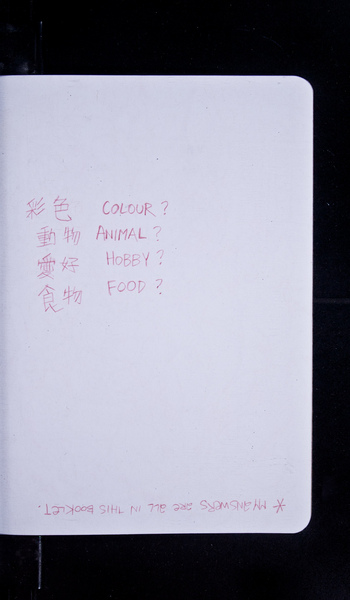 彩色 COLOUR?
動物 ANIMAL?
愛好 HOBBY?
食物 FOOD?
* MY ANSWERS ARE ALL IN THIS BOOKLET.